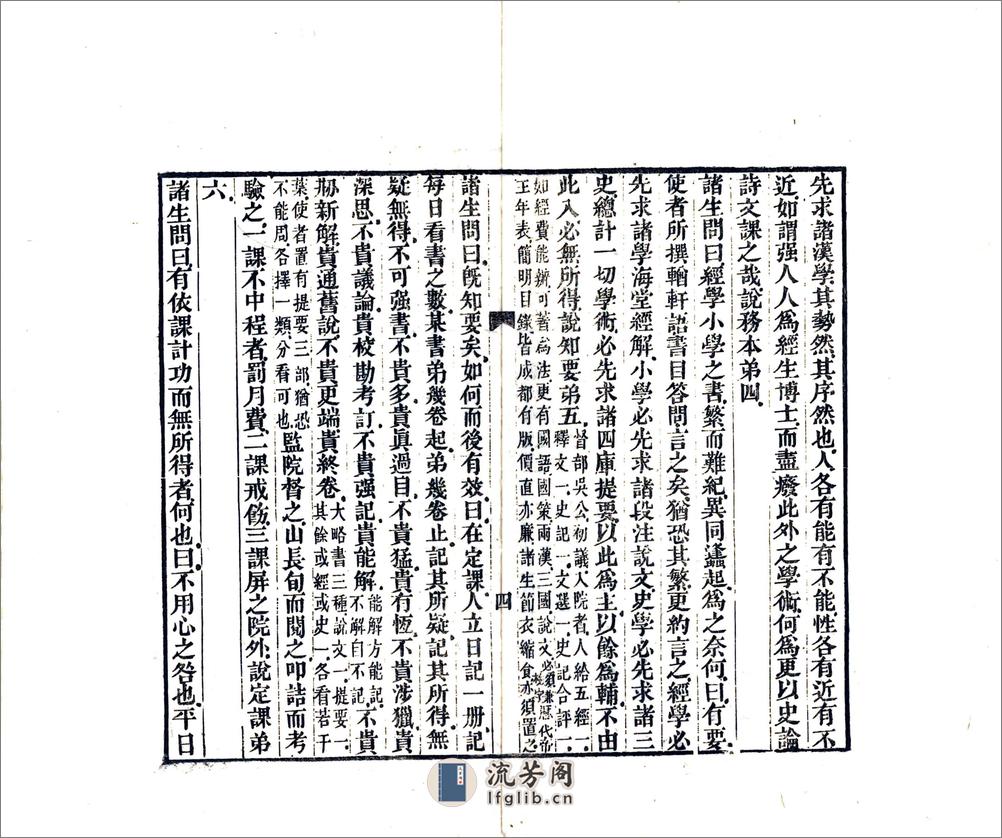 先求諸漢學其勢然其序然也人各有能有不能性各有近有不
近如謂强人人爲經生博士而盡廢此外之學術何爲更以史論
詩文課之哉說務本弟四
諸生問曰經學小學之書繁而難紀異同蠭起爲之奈何曰有要
使者所撰輶軒語書目答問言之矣猶恐其繁更約言之經學必
先求諸學海堂經解小學必先求諸段注說文史學必先求諸三
史總計一切學術必先求諸四庫提要以此爲主以餘爲輔不由
此入必無所得說知要弟五督部吳公初議入院者人給五經一
釋文一史記一文選一史記合評一
如經費能辦可著爲法更有國語國策兩漢三國說文必須兼歷代帝
王年表簡明目錄皆成都有版價直亦廉諸生節衣縮食亦須置之
四
諸生問曰旣知要矣如何而後有效曰在定課人立日記一册記
每日看書之數某書弟幾卷起弟幾卷止記其所疑記其所得無
疑無得不可强書不貴多貴眞過目不貴猛貴有恆不貴涉獵貴
深思不貴議論貴校勘考訂不貴强記貴能解能解方能記
不解自不記不貴
剏新解貴通舊說不貴更端貴終卷大略書三種說文一提要一
其餘或經或史一各看若干
葉使者置有提要三部猶恐
不能周各擇一類分看可也監院督之山長旬而閱之叩詰而考
驗之一課不中程者罰月費二課戒飭三課屏之院外說定課弟
六
諸生問曰有依課計功而無所得者何也曰不用心之咎也平日
流芳阁
lfglib.cn